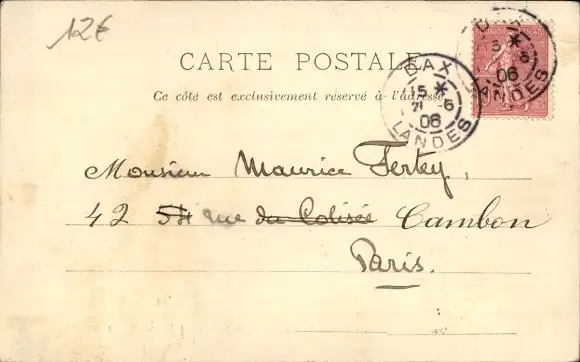 12€
CARTE POSTALE
Ce côté est exclusivement réservé à l'adresse
DAX
15 *
21 - 6
06
LANDES
D
15 *
6
06
LANDES
Monsieur Maurice Fertey,
42 54 rue du Colisée Cambon
Paris.